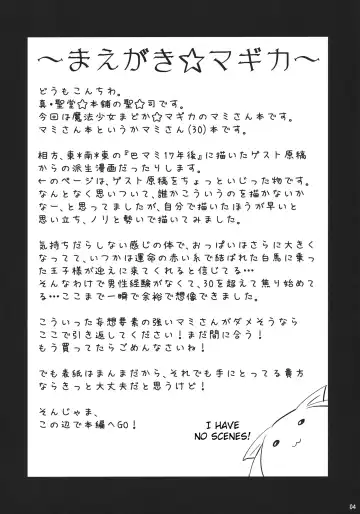 ～まえがき☆マギカ～
どうもこんちわ。
真・聖堂☆本舗の聖☆司です。
今回は魔法少女まどか☆マギカのマミさん本です。
マミさん本というかマミさん(30)本です。
相方、東*南*東の『巴マミ17年後』に描いたゲスト原稿
からの派生漫画だったりします。
←のページは、ゲスト原稿をちょっといじった物です。
なんとなく思いついて、誰かこういうの描かないか
なー、と思ってましたが、自分で描いたほうが早いと
思い立ち、ノリと勢いで描いてみました。
気持ちだらしない感じの体で、おっぱいはさらに大きく
なってて、いつかは運命の赤い糸で結ばれた白馬に乗っ
た王子様が迎えに来てくれると信じてる…
そんなわけで男性経験がなくて、30を超えて焦り始めて
る…ここまで一瞬で余裕で想像できました。
こういった妄想要素の強いマミさんがダメそうなら
ここで引き返してください！まだ間に合う！
もう買ってたらごめんなさいね！
でも表紙はまんまだから、それでも手にとってる貴方
ならきっと大丈夫だと思うけど！
そんじゃま、
この辺で本編へGO！
I HAVE
NO SCENES!
04